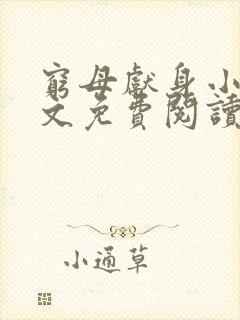 窮母獻身小
文免費閱讀
小通草